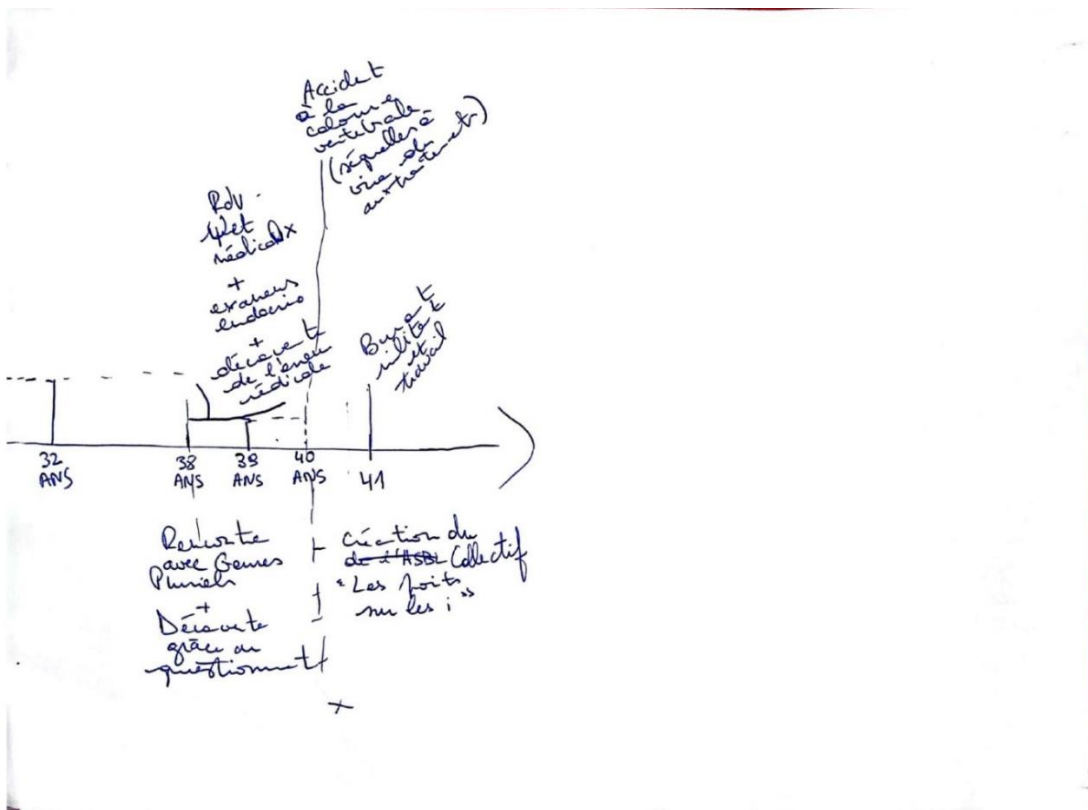 Accident
à la
colonne
vertébrale
(séquelles à
vie du
aux traitements)
Rdv
médicaux
+
examens
endocrino
+
découverte
de l'erreur
médicale
Burn out
militant
et
travail
32
ANS
38
ANS
39
ANS
40
ANS
41
Rencontre
avec Genres
Pluriels
+
Découverte
grâce au
questionnement
+
Création du
de l'ASBL Collectif
"Les points
sur les i"